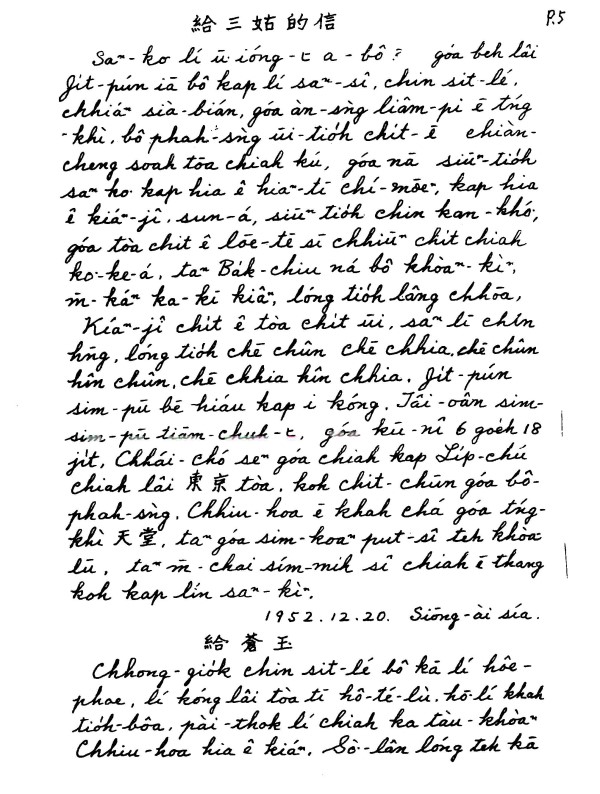 給三姑的信
P.5
Saⁿ-ko͘ lí ū ióng-ㄷ a-bô? góa beh lâi
Ji̍t-pún iā bô kap lí saⁿ-sî, chin sit-lé,
chhiáⁿ sià-bián, góa àn-sǹg liâm-pi ē tńg
-khì, bô phah-sǹg ūi-tio̍h chit-ē chiàn-
cheng soah tòa chiah kú, góa nā siūⁿ-tio̍h
saⁿ ko͘ kap hia ê hiaⁿ-tī chí-mōeⁿ, kap hia
ê kiáⁿ-jî, sun-á, siūⁿ tio̍h chin kan-khó͘,
góa tòa chit ê lōe-tē sī chhiūⁿ chi̍t chiah
ko͘-ke-á, taⁿ Ba̍k-chiu ná bô khòaⁿ-kìⁿ,
m̄-káⁿ ka-kī kiâⁿ, lóng tio̍h lâng chhōa,
Kíaⁿ-jî chi̍t ê tòa chi̍t ūi, saⁿ lī chin
hn̄g, lóng tio̍h chē chûn chē chhia, chē chûn
hîn chûn, chē chhia hîn chhia. Ji̍t-pún
sim-pū bē hiáu kap i kóng. Tâi-oân sim-
sim-pū tiām-chuh-ㄷ, góa kū-nî 6 goe̍h 18
ji̍t, Chhái-chó seⁿ góa chiah kap Li̍p-chú
chiah lâi 東京 tòa, koh chit-chūn góa bô-
phah-sǹg, Chhiu-hoa ē khah chá góa tńg-
khì 天堂, taⁿ góa sim-koaⁿ put-sî teh khòa
lū, taⁿ m̄-chai sím-mih sî chiah ē thang
koh kap lín saⁿ-kìⁿ,
1952.12.20. Siōng-ài siá.
給蒼玉
Chhong-gio̍k chin sit-lé bô kā lí hôe-
phoe, lí kóng lâi tòa tī hô-té-lù, hō͘-lí khah
tio̍h-bôa, pài-thok lí chiah ka tàu-khòaⁿ
Chhiu-hoa hia ê kiáⁿ, Sò͘-lân lóng teh kā